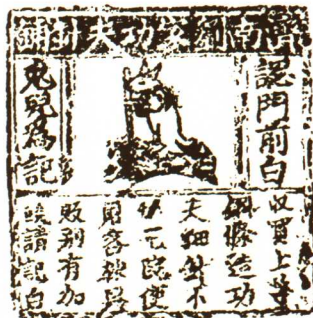 濟南劉家功夫針鋪
認門前白
兔兒爲記
收買上等
鋼條造功
夫細針不
用
販別有加
饒請記白